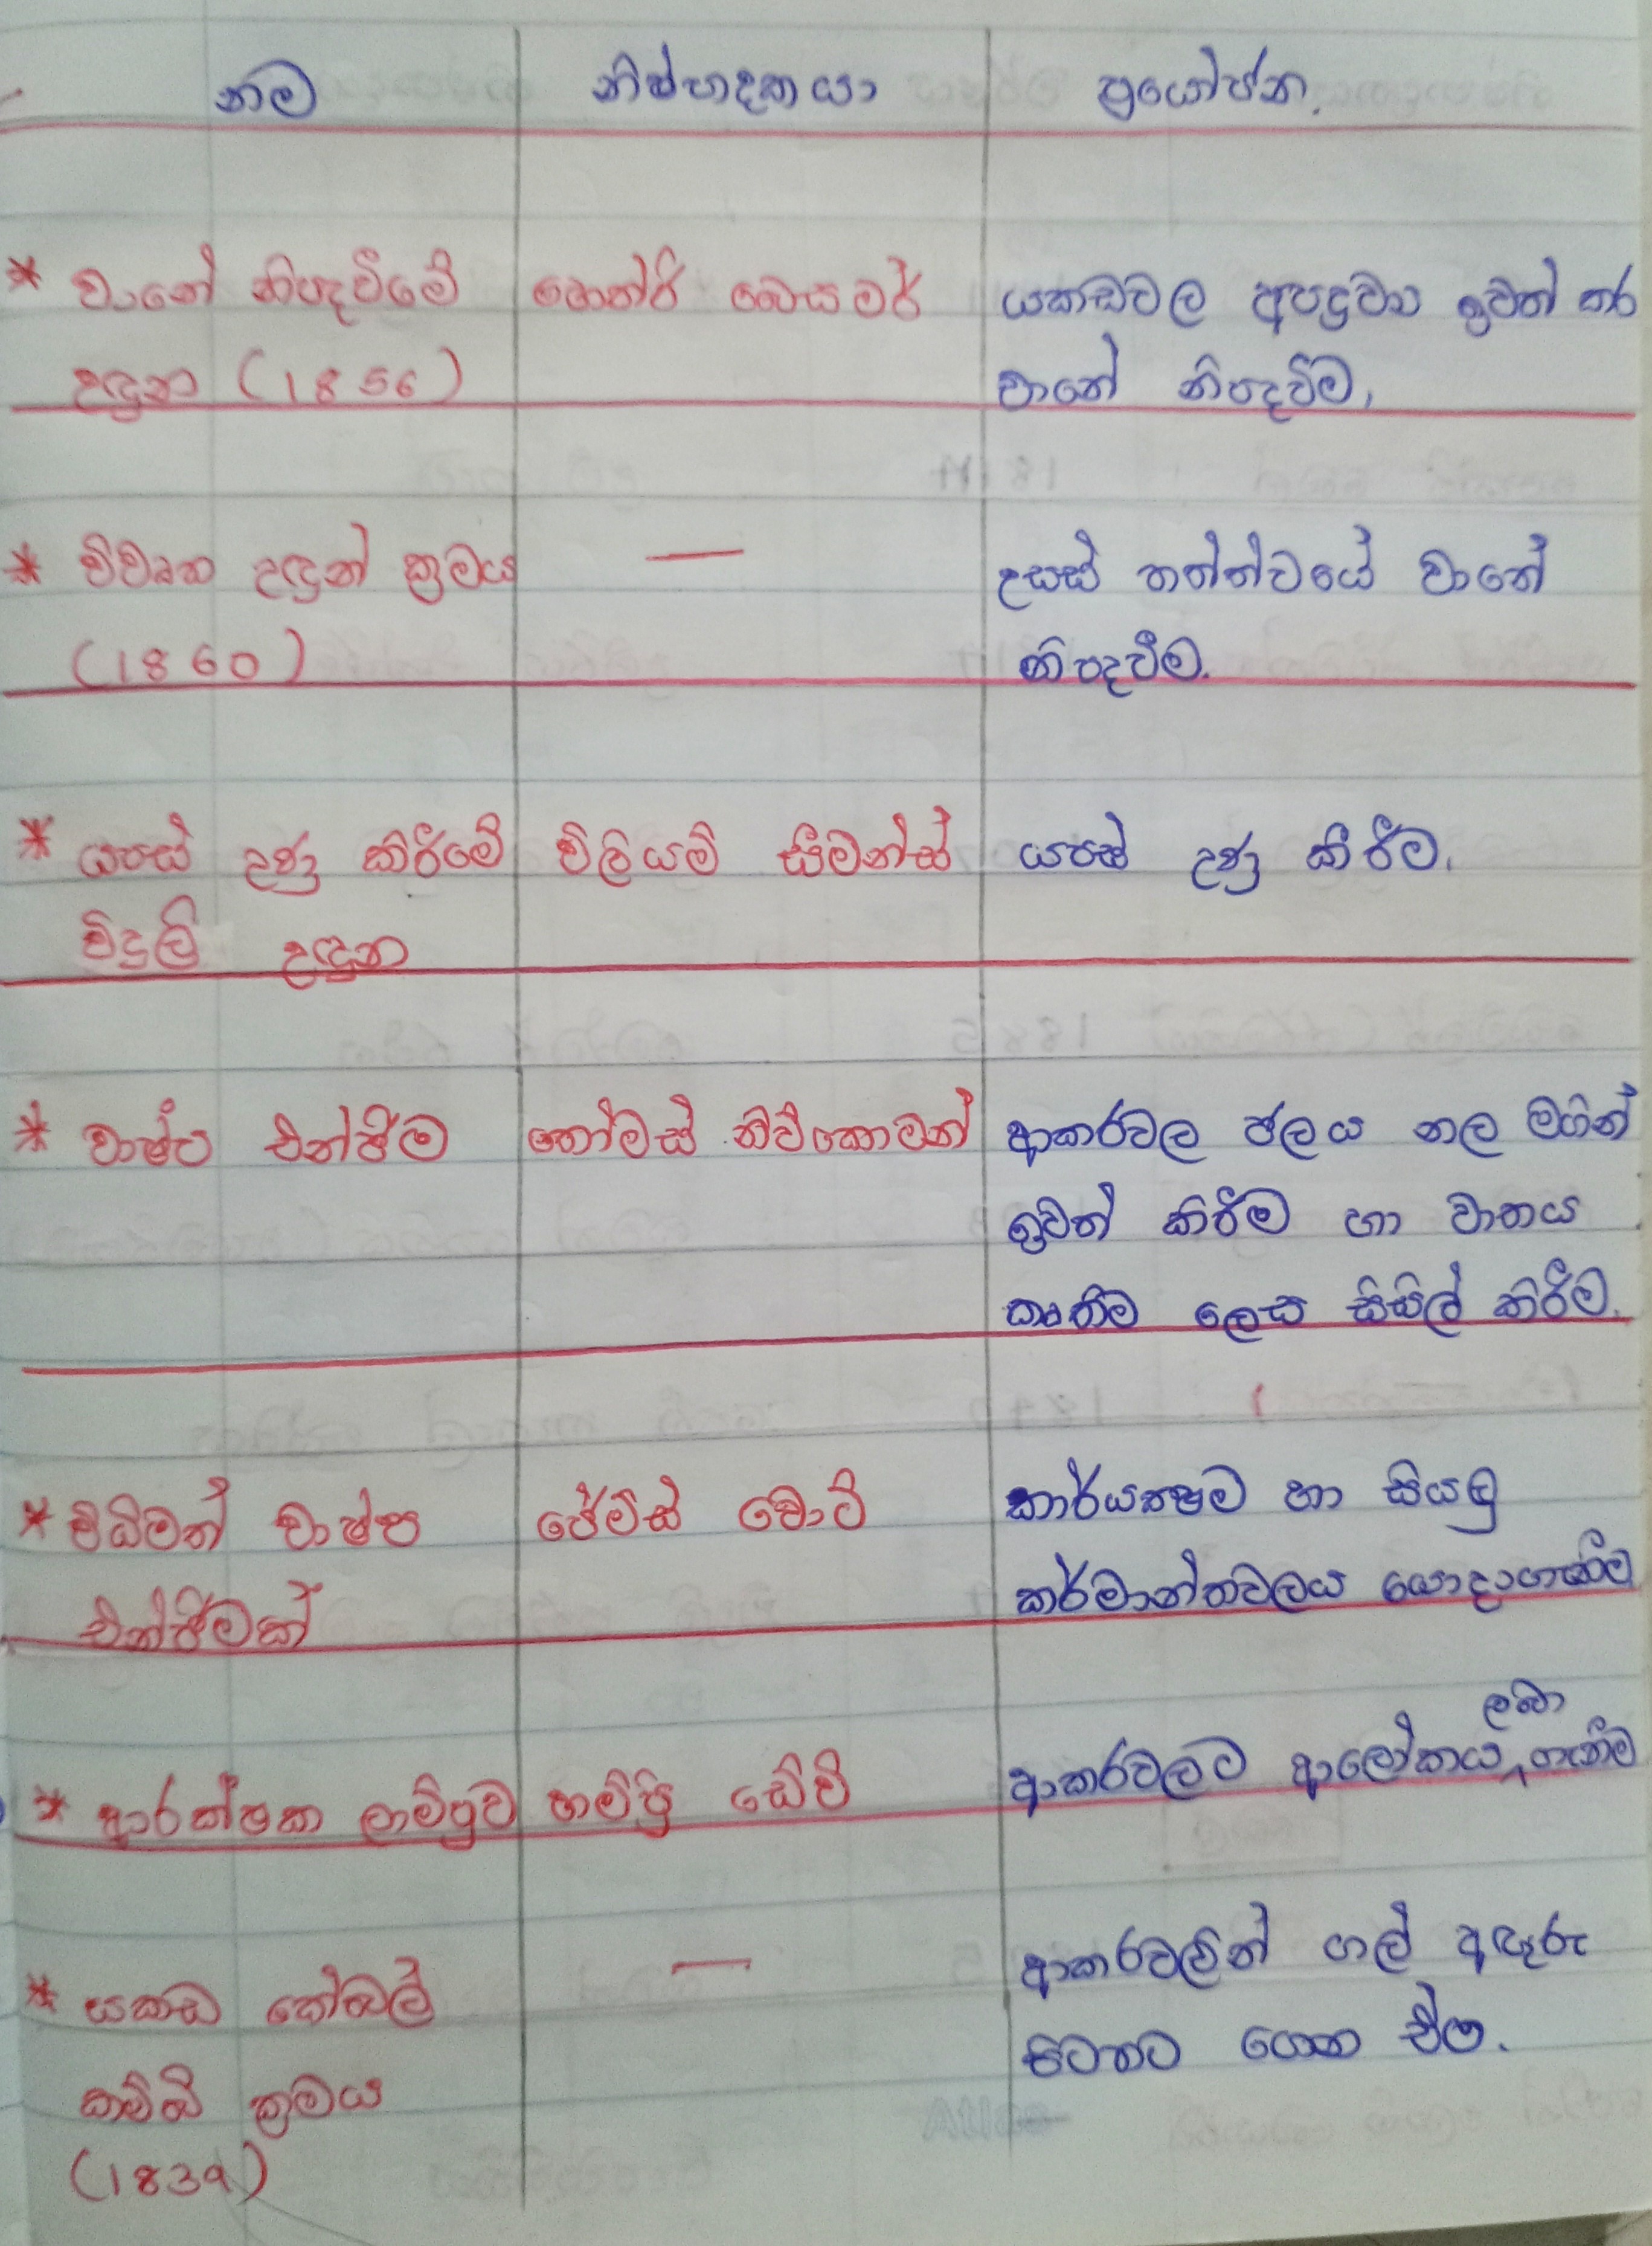 නම නිෂ්පාදකයා ප්‍රයෝජන.
* වානේ නිපදවීමේ හෙන්රි බෙසමර් යකඩවල අපද්‍රව්‍ය ඉවත් කර
උඳුන (1856) වානේ නිපදවීම.
* විවෘත උඳුන් ක්‍රමය — උසස් තත්ත්වයේ වානේ
(1860) නිපදවීම.
* යපස් උණු කිරීමේ විලියම් සීමන්ස් යපස් උණු කිරීම.
විදුලි උඳුන
* වාෂ්ප එන්ජිම තෝමස් නිව්කොමන් ආකරවල ජලය නල මගින්
ඉවත් කිරීම හා වාතය
කෘතිම ලෙස සිසිල් කිරීම.
* විධිමත් වාෂ්ප ජේම්ස් වොට් කාර්යක්ෂම හා සියලු
එන්ජිමක් කර්මාන්තවලය යොදාගැනීම
ලබා
* ආරක්ෂක ලාම්පුව හම්ප්‍රි ඩේවි ආකරවලට ආලෝකය ගැනීම
* යකඩ කේබල් — ආකරවලින් ගල් අඟුරු
කම්බි ක්‍රමය පිටතට ගෙන ඒම.
(1839)